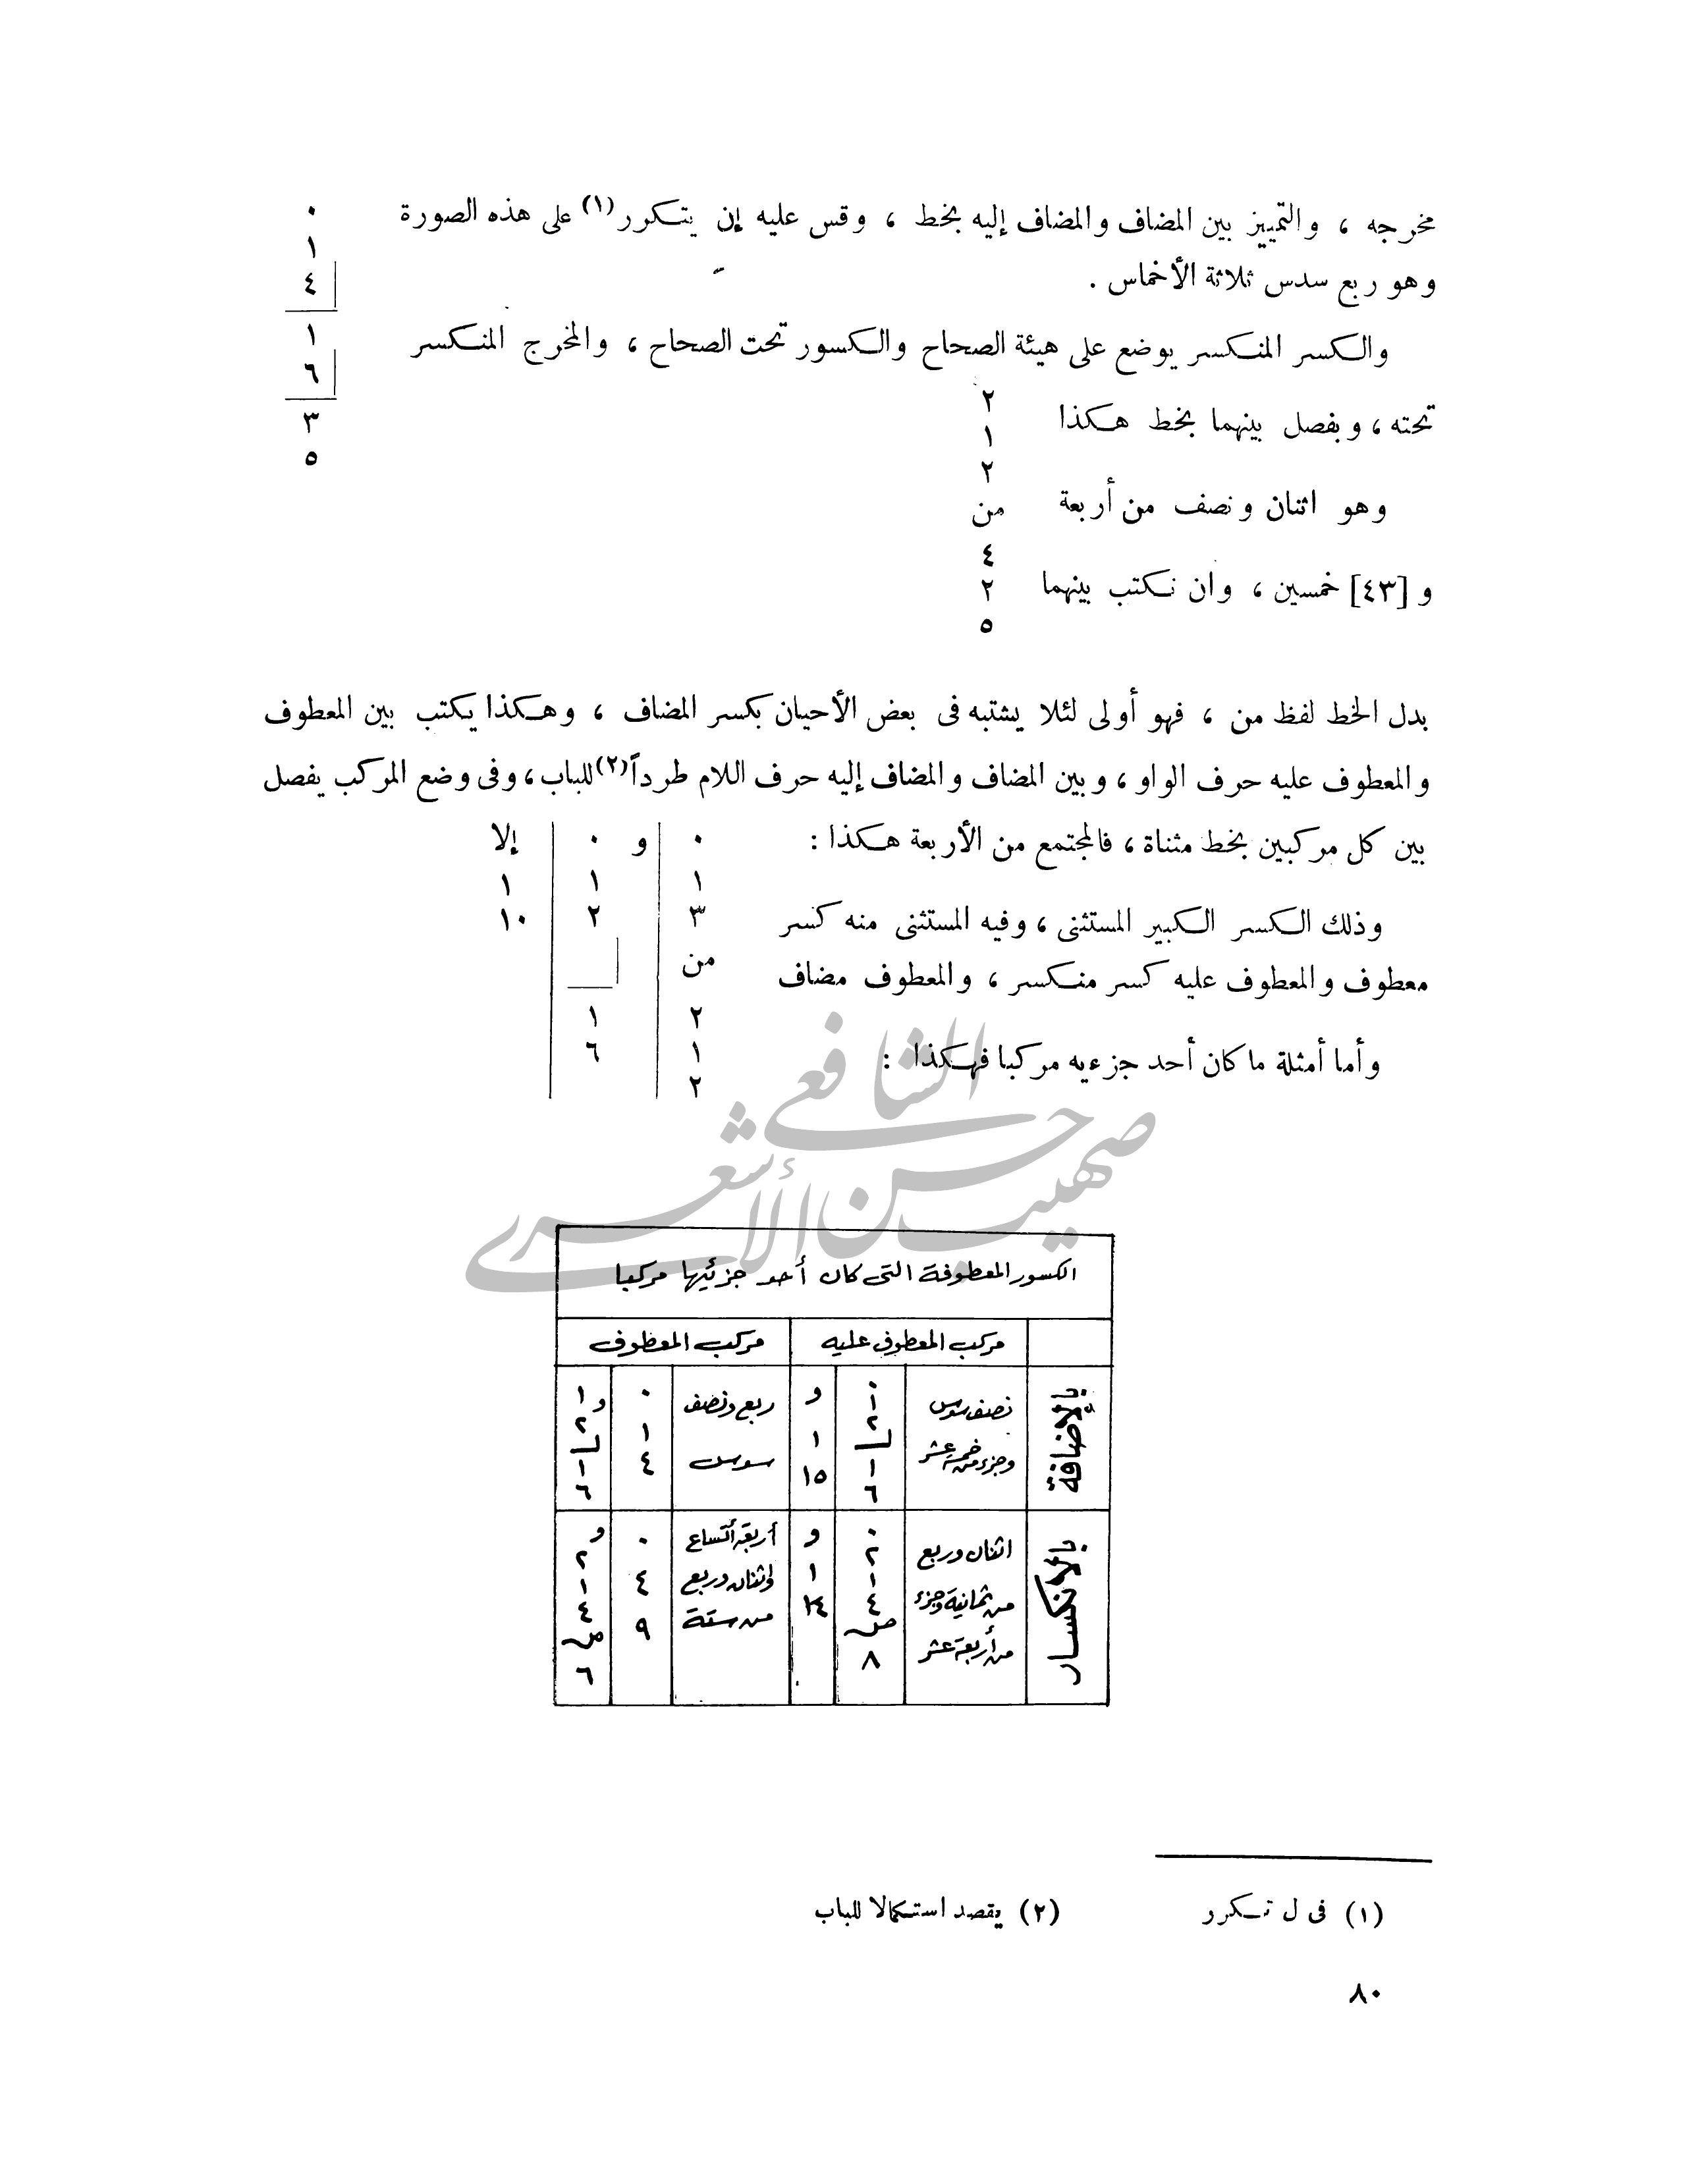 مخرجه ، والتمييز بين المضاف والمضاف إليه بخط ، وقس عليه إن يتكرر(١) على هذه الصورة
وهو ربع سدس ثلاثة الأخماس .
٠
١
٤
١
٦
٣
٥
والكسر المنكسر يوضع على هيئة الصحاح والكسور تحت الصحاح ، والمخرج المنكسر
تحته ، ويفصل بينهما بخط هكذا
وهو اثنان ونصف من أربعة
و [٤٣] خمسين ، وان نكتب بينهما
٢
١
٢
من
٤
٢
٥
بدل الخط لفظ من ، فهو أولى لئلا يشتبه فى بعض الأحيان بكسر المضاف ، وهكذا يكتب بين المعطوف
والمعطوف عليه حرف الواو ، وبين المضاف والمضاف إليه حرف اللام طرداً(٢) للباب ، وفى وضع المركب يفصل
بين كل مركبين بخط مثناة ، فالمجتمع من الأربعة هكذا :
وذلك الكسر الكبير المستثنى ، وفيه المستثنى منه كسر
معطوف والمعطوف عليه كسر منكسر ، والمعطوف مضاف
٠ و ٠ إلا
١ ١ ١
٣ ٢ ١٠
من
٢ ١
١ ٦
٢
وأما أمثلة ما كان أحد جزءيه مركبا فهكذا :
صهيب حسن الشافعي الأشعري
الكسور المعطوفة التى كان أحد جزئيها مركبا
مركب المعطوف عليه
مركب المعطوف
بالإضافة
نصف سدس
وجزء من خمسة عشر
٠
١
٢
١
٦
و
١
١٥
ربع ونصف
سدس
٠
١
٤
و
١
٢
١
٦
بالانكسار
اثنان وربع
من ثمانية وجزء
من أربعة عشر
٠
٢
١
٤
من
٨
و
١
١٤
أربعة أتساع
واثنان وربع
من ستة
٠
٤
٩
و
٢
١
٤
من
٦
(١) فى ل تكرر
(٢) يقصد استكمالا للباب
٨٠